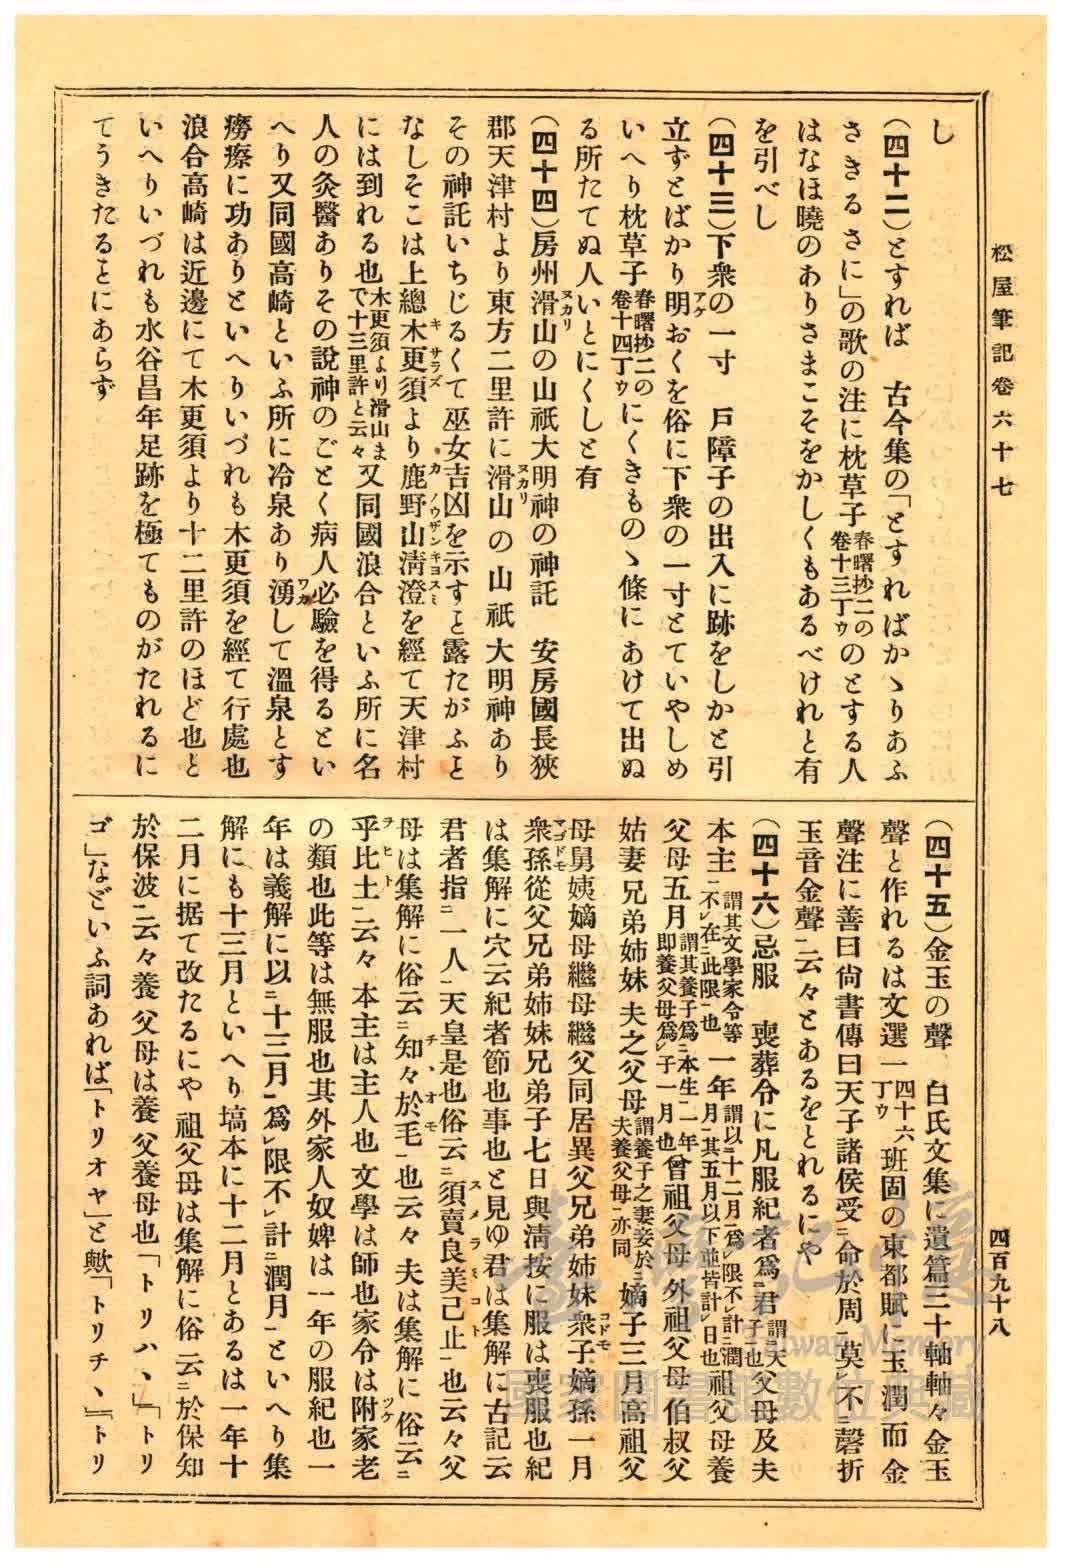 松屋筆記卷六十七
四百九十八
し
（四十二）とすれば　古今集の「とすればかゝりあふ
さきるさに」の歌の注に枕草子春曙抄二の卷十三丁ウのとする人
はなほ曉のありさまこそをかしくもあるべけれと有
を引べし
（四十三）下衆の一寸　戸障子の出入に跡をしかと引
立ずとばかり明おくを俗に下衆の一寸とていやしめ
いへり枕草子春曙抄二の卷十四丁ウにくきものゝ條にあけて出ぬ
る所たてぬ人いとにくしと有
（四十四）房州滑山の山祇大明神の神託　安房國長狹
郡天津村より東方二里許に滑山の山祇大明神あり
その神託いちじるくて巫女吉凶を示すと露たがふと
なしそこは上總木更須より鹿野山淸澄を經て天津村
には到れる也木更須より滑山まで十三里許と云々又同國浪合といふ所に名
人の灸醫ありその說神のごとく病人必驗を得るとい
へり又同國高崎といふ所に冷泉あり湧して溫泉とす
癆瘵に功ありといへりいづれも木更須を經て行處也
浪合高崎は近邊にて木更須より十二里許のほど也と
いへりいづれも水谷昌年足跡を極てものがたれるに
てうきたるとにあらず
（四十五）金玉の聲　白氏文集に遺篇三十軸軸々金玉
聲と作れるは文選一四十六丁ウ班固の東都賦に玉潤而金
聲注に善曰尙書傳曰天子諸侯受ニ命於周、莫ㇾ不ニ磬折
玉音金聲一云々とあるをとれるにや
（四十六）忌服　喪葬令に凡服紀者爲ニ君謂天子一也父母及夫
本主ニ謂其文學家令等不ㇾ在ニ此限一也一年謂以ニ十二月一爲ㇾ限不ㇾ計ニ潤月一其五月以下並皆計ㇾ日也祖父母養
父母五月謂其養子爲ニ本生一一年即養父母爲ㇾ子一月也曾祖父母外祖父母伯叔父
姑妻兄弟姉妹夫之父母謂養子之妻妾於ニ夫養父母一亦同嫡子三月高祖父
母舅姨嫡母繼母繼父同居異父兄弟姉妹衆子嫡孫一月
衆孫從父兄弟姉妹兄弟子七日與淸按に服は喪服也紀
は集解に穴云紀者節也事也と見ゆ君は集解に古記云
君者指ニ一人一天皇是也俗云ニ須賣良美己止一也云々父
母は集解に俗云ニ知々於毛一也云々夫は集解に俗云ニ
乎比土一云々本主は主人也文學は師也家令は附家老
の類也此等は無服也其外家人奴婢は一年の服紀也一
年は義解に以ニ十三月一爲ㇾ限不ㇾ計ニ潤月一といへり集
解にも十三月といへり塙本に十二月とあるは一年十
二月に据て改たるにや祖父母は集解に俗云ニ於保知
於保波一云々養父母は養父養母也「トリハヽ」「トリ
ゴ」などいふ詞あれば「トリオヤ」と歟「トリチヽ」「トリ
臺灣記憶
Taiwan Memory
國家圖書館數位典藏